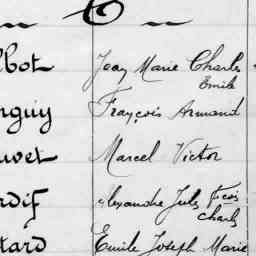 lbot Jean Marie Charles
Emile
nguy François Armand
uvet Marcel Victor
rdif Alexandre Jules Fçois
Charles
tard Emile Joseph Marie